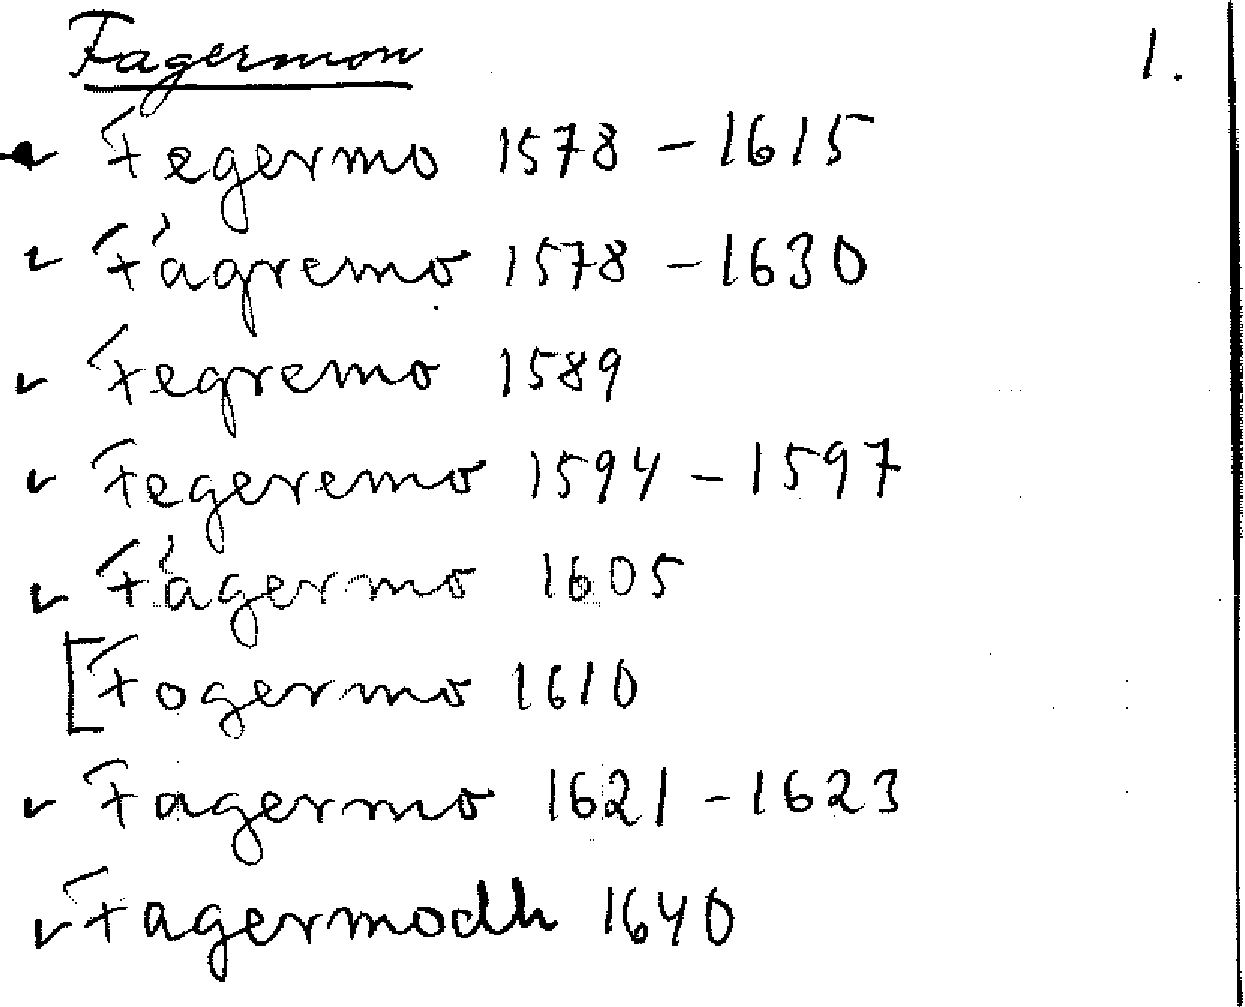 Fagermon 1.
Fegermo 1578 - 1615
Fägremo 1578 - 1630
Fegremo 1589
Fegeremo 1594 - 1597
Fägermo 1605
[Fogermo 1610
Fagermo 1621 - 1623
Fagermodh 1640